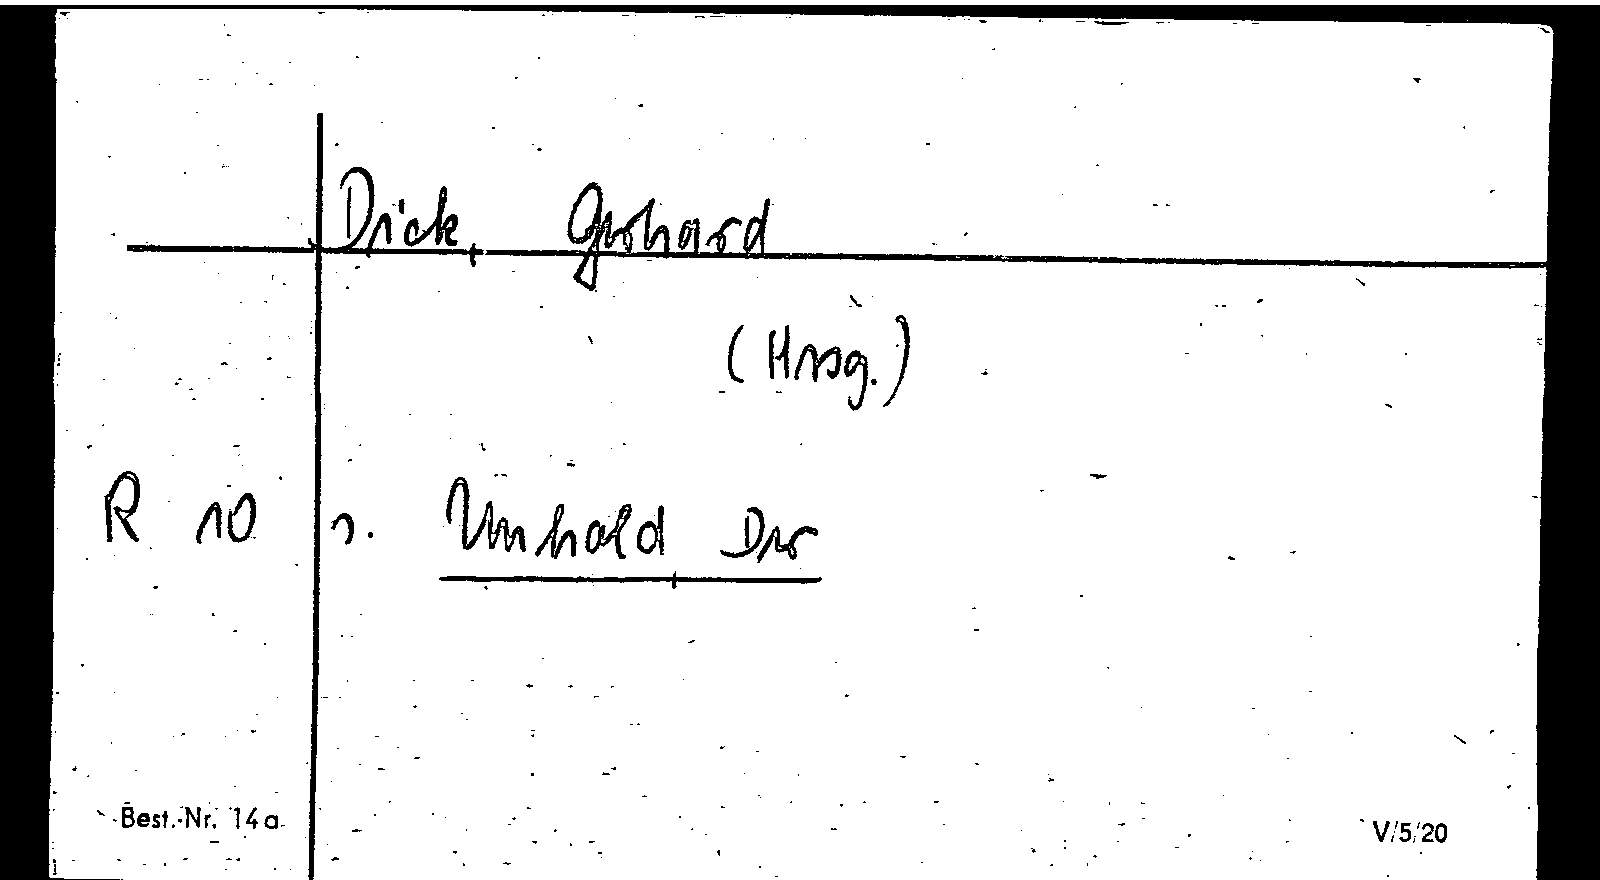 Dick, Gerhard
(Hrsg.)
R 10 s. Unhold Der
Best.-Nr. 14a
V/5/20